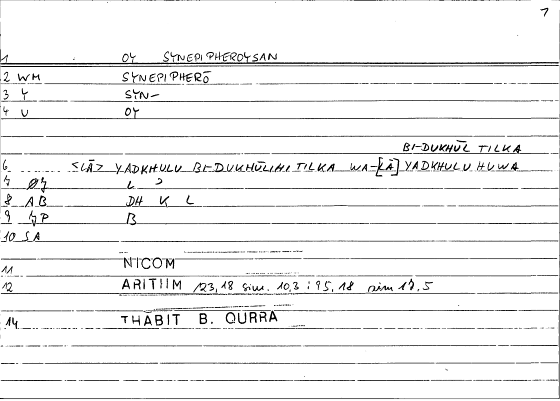 7
1 OY SYNEPIPHEROYSAN
2 WM SYNEPIPHERŌ
3 Y SYN-
4 V OY
BI-DUKHŪL TILKA
6 <LĀ> YADKHULU BI-DUKHŪLIHI TILKA WA-[LĀ] YADKHULU HUWA
L
8 AB DH K L
9 B
10 SA
11 NICOM
12 ARITIIM 123,18 sim. 10,3 : 95,18 sim 17.5
14 THABIT B. QURRA